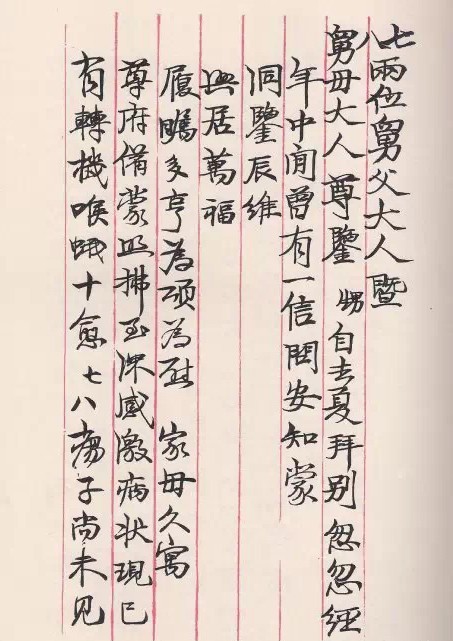 七八兩位舅父大人暨
舅母大人尊鑒 甥自去夏拜別忽忽經
年中間曾有一信問安知蒙
洞鑒辰維
興居萬福
履祉多亨為頌為慰 家母久寓
尊府備蒙照拂至深感激病狀現已
有轉機喉蛾十愈七八瘍子尚未見